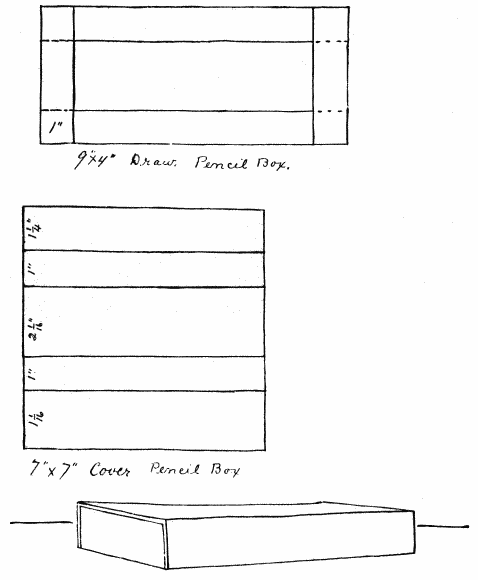 1"
9"x4" Draw. Pencil Box.
1¼"
1"
2 1/16"
1"
7"x7" Cover Pencil Box